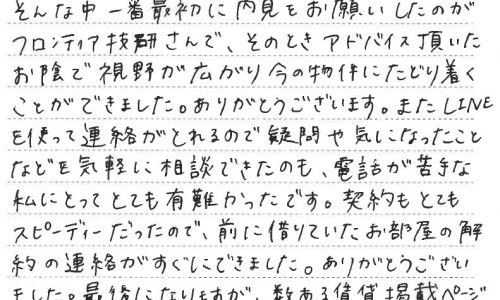 そんな中一番最初に内見をお願いしたのが
フロンティア技研さんで、そのときアドバイス頂いた
お陰で視野が広がり今の物件にたどり着く
ことができました。ありがとうございます。またLINE
を使って連絡がとれるので疑問や気になったこと
などを気軽に相談できたのも、電話が苦手な
私にとってとても有難かったです。契約もとても
スピーディーだったので、前に借りていたお部屋の解
約の連絡がすぐにできました。ありがとうござい
ました。最後になりますが、数ある賃貸掲載ページ